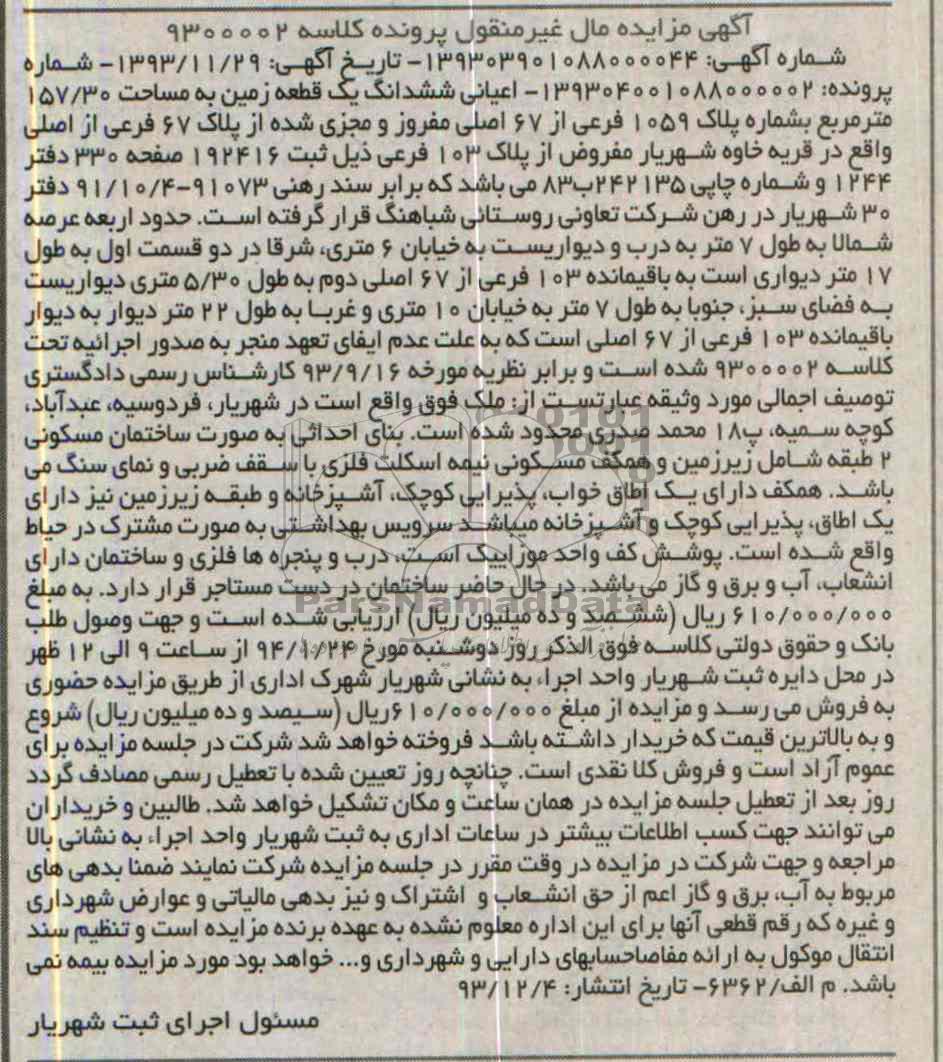 آگهی مزایده مال غیرمنقول پرونده کلاسه ۹۳۰۰۰۰۲
شماره آگهی: ۱۳۹۳۰۳۹۰۱۰۸۸۰۰۰۰۴۴- تاریخ آگهی: ۱۳۹۳/۱۱/۲۹- شماره
پرونده: ۱۳۹۳۰۴۰۰۱۰۸۸۰۰۰۰۰۲- اعیانی ششدانگ یک قطعه زمین به مساحت ۱۵۷/۳۰
مترمربع بشماره پلاک ۱۰۵۹ فرعی از ۶۷ اصلی مفروز و مجزی شده از پلاک ۶۷ فرعی از اصلی
واقع در قریه خاوه شهریار مفروض از پلاک ۱۰۳ فرعی ذیل ثبت ۱۹۲۴۱۶ صفحه ۳۳۰ دفتر
۱۲۴۴ و شماره چاپی ۲۴۲۱۳۵ب۸۳ می باشد که برابر سند رهنی ۹۱۰۷۳-۹۱/۱۰/۴ دفتر
۳۰ شهریار در رهن شرکت تعاونی روستائی شباهنگ قرار گرفته است. حدود اربعه عرصه
شمالا به طول ۷ متر به درب و دیواریست به خیابان ۶ متری، شرقا در دو قسمت اول به طول
۱۷ متر دیواری است به باقیمانده ۱۰۳ فرعی از ۶۷ اصلی دوم به طول ۵/۳۰ متری دیواریست
به فضای سبز، جنوبا به طول ۷ متر به خیابان ۱۰ متری و غربا به طول ۲۲ متر دیوار به دیوار
باقیمانده ۱۰۳ فرعی از ۶۷ اصلی است که به علت عدم ایفای تعهد منجر به صدور اجرائیه تحت
کلاسه ۹۳۰۰۰۰۲ شده است و برابر نظریه مورخه ۹۳/۹/۱۶ کارشناس رسمی دادگستری
توصیف اجمالی مورد وثیقه عبارتست از: ملک فوق واقع است در شهریار، فردوسیه، عبدآباد،
کوچه سمیه، پ۱۸ محمد صدری محدود شده است. بنای احداثی به صورت ساختمان مسکونی
۲ طبقه شامل زیرزمین و همکف مسکونی نیمه اسکلت فلزی با سقف ضربی و نمای سنگ می
باشد. همکف دارای یک اطاق خواب، پذیرایی کوچک، آشپزخانه و طبقه زیرزمین نیز دارای
یک اطاق، پذیرایی کوچک و آشپزخانه میباشد سرویس بهداشتی به صورت مشترک در حیاط
واقع شده است. پوشش کف واحد موزاییک است، درب و پنجره ها فلزی و ساختمان دارای
انشعاب، آب و برق و گاز می باشد. در حال حاضر ساختمان در دست مستاجر قرار دارد. به مبلغ
۶۱۰/۰۰۰/۰۰۰ ریال (ششصد و ده میلیون ریال) ارزیابی شده است و جهت وصول طلب
بانک و حقوق دولتی کلاسه فوق الذکر روز دوشنبه مورخ ۹۴/۱/۲۴ از ساعت ۹ الی ۱۲ ظهر
در محل دایره ثبت شهریار واحد اجراء به نشانی شهریار شهرک اداری از طریق مزایده حضوری
به فروش می رسد و مزایده از مبلغ ۶۱۰/۰۰۰/۰۰۰ریال (سیصد و ده میلیون ریال) شروع
و به بالاترین قیمت که خریدار داشته باشد فروخته خواهد شد شرکت در جلسه مزایده برای
عموم آزاد است و فروش کلا نقدی است. چنانچه روز تعیین شده با تعطیل رسمی مصادف گردد
روز بعد از تعطیل جلسه مزایده در همان ساعت و مکان تشکیل خواهد شد. طالبین و خریداران
می توانند جهت کسب اطلاعات بیشتر در ساعات اداری به ثبت شهریار واحد اجراء به نشانی بالا
مراجعه و جهت شرکت در مزایده در وقت مقرر در جلسه مزایده شرکت نمایند ضمنا بدهی های
مربوط به آب، برق و گاز اعم از حق انشعاب و اشتراک و نیز بدهی مالیاتی و عوارض شهرداری
و غیره که رقم قطعی آنها برای این اداره معلوم نشده به عهده برنده مزایده است و تنظیم سند
انتقال موکول به ارائه مفاصاحسابهای دارایی و شهرداری و... خواهد بود مورد مزایده بیمه نمی
باشد. م الف/۶۳۶۲- تاریخ انتشار: ۹۳/۱۲/۴
مسئول اجرای ثبت شهریار
ParsNamadData